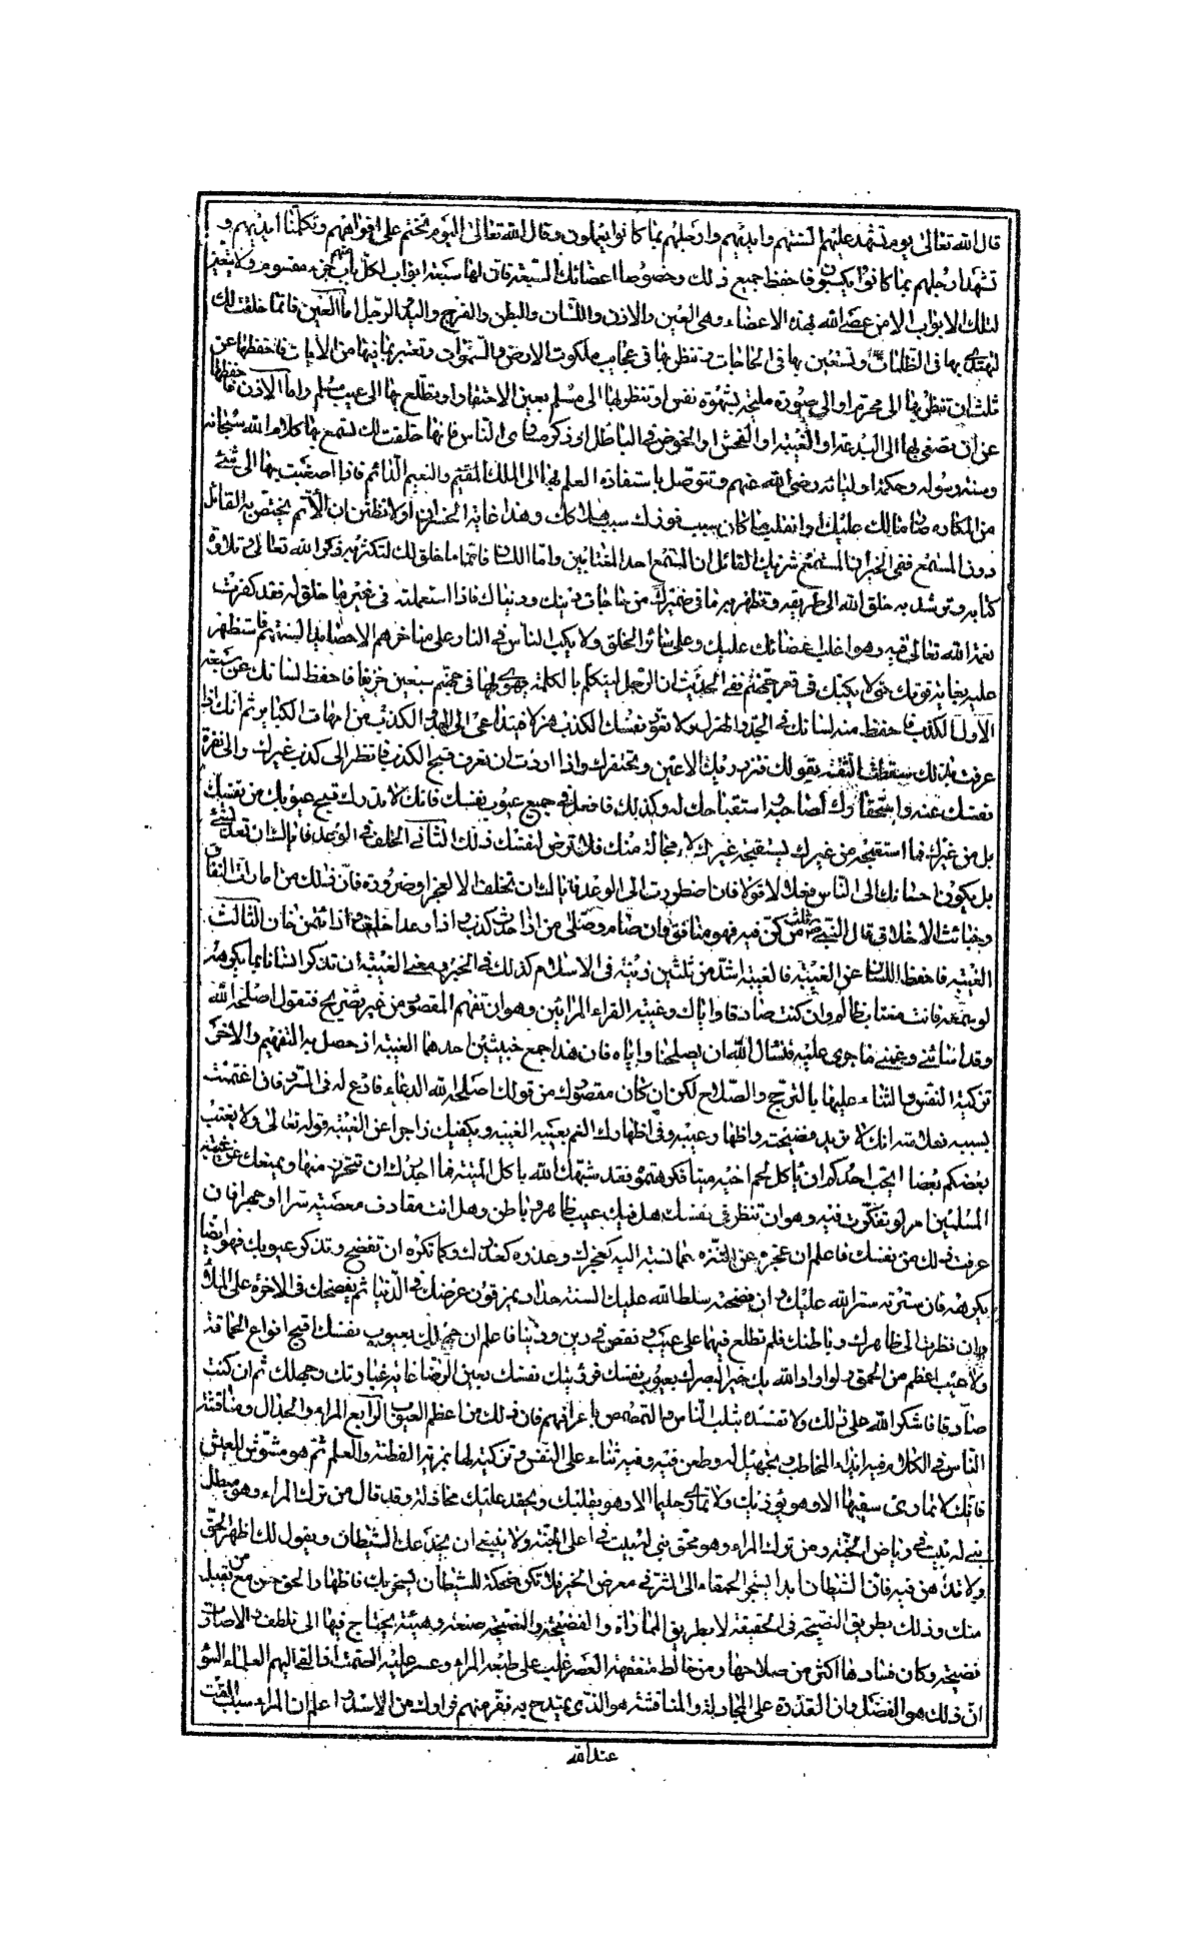 قال الله تعالى يوم تشهد عليهم السنتهم وايديهم وارجلهم بما كانوا يعملون وقال الله تعالى اليوم نختم على افواههم وتكلمنا ايديهم و
تشهد ارجلهم بما كانوا يكسبون فاحفظ جميع ذلك وخصوصا اعضائك السبعة فان لها سبعة ابواب لكل باب منهم جزء مقسوم ولا يتعين
لتلك الابواب الا من عصى الله بهذه الاعضاء وهي العين والاذن واللسان والبطن والفرج واليد والرجل اما العين فانما خلقت لك
لتهتدى بها في الظلمات وتستعين بها في الحاجات وتنظر بها في عجايب ملكوت الارض والسموات وتعتبر بما فيها من الايات فاحفظها عن
ثلث ان تنظر بها الى محرم او الى صورة مليحة بشهوة نفس او تنظر بها الى مسلم بعين الاحتقار او تطلع بها الى عيب مسلم واما الاذن فاحفظها
عن ان تصغى بها الى البدعة او الغيبة او الفحش او الخوض في الباطل او ذكر مساوى الناس فانها خلقت لك لتسمع بها كلام الله سبحانه
وسنة رسوله وحكمة اوليائه رضى الله عنهم وتتوصل باستفادة العلم بها الى الملك المقيم والنعيم الدائم فاذا اصغيت بها الى شئ
من المكاره صار ما لك عليك وانقلب ما كان سبب فوزك سبب هلاكك وهذا غاية الخسران ولا تظنن ان الاثم يختص به القائل
دون المستمع ففي الخبر ان المستمع شريك القائل ان المستمع احد المغتابين واما اللسان فانما خلق لك لتكثر به ذكر الله تعالى وتلاوة
كتابه وترشد به خلق الله الى طريقه وتظهر به ما في ضميرك من حاجات دينك ودنياك فاذا استعملته في غير ما خلق له فقد كفرت
نعمة الله تعالى فيه وهو اغلب اعضائك عليك وعلى سائر الخلق ولا يكب الناس في النار على مناخرهم الا حصايد السنتهم فاستظهر
عليه بغاية قوتك حتى لا يكبك في قعر جهنم ففي الحديث ان الرجل ليتكلم بالكلمة يهوى بها في جهنم سبعين خريفا فاحفظ لسانك عن سبعة
الاول الكذب فاحفظ منه لسانك في الجد والهزل ولا تعود نفسك الكذب هزلا فيتداعى الى الجد والكذب من امهات الكباير ثم انك اذا
عرفت بذلك سقطت الثقة بقولك فتزدريك الاعين وتحتقرك واذا اردت ان تعرف قبح الكذب فانظر الى كذب غيرك والى نفرة
نفسك عنه واستحقارك لصاحبه واستقباحك له وكذلك فافعل في جميع عيوب نفسك فانك لا تدرك قبح عيوبك من نفسك
بل من غيرك فما استقبحته من غيرك يستقبحه غيرك لا محالة منك فلا ترض لنفسك ذلك الثاني الخلف في الوعد فاياك ان تعد بشئ
بل يكون احسانك الى الناس فعلا لا قولا فان اضطررت الى الوعد فاياك ان تخلف الا لعجز او ضرورة فان ذلك من امارات النفاق
وخبائث الاخلاق قال النبي ثلث من كن فيه فهو منافق وان صام وصلى من اذا حدث كذب واذا وعد اخلف واذا ائتمن خان الثالث
الغيبة فاحفظ اللسان عن الغيبة فالغيبة اشد من ثلثين زنية في الاسلام كذلك في الخبر ومعنى الغيبة ان تذكر انسانا بما يكرهه
لو سمعه فانت مغتاب ظالم وان كنت صادقا واياك وغيبة القراء المرائين وهو ان تفهم المقصود من غير تصريح فتقول اصلحه الله
وقد اسائني وغمني ما جرى عليه فنسأل الله ان يصلحنا واياه فان هذا جمع خبيثين احدهما الغيبة اذ حصل به التفهيم والاخر
تزكية النفس والثناء عليها بالتحرج والصلاح لكن ان كان مقصودك من قولك اصلحه الله الدعاء فادع له في السر فان اغتممت
بسببه فعلامته انك لا تريد فضيحته واظهار عيبه وفي اظهارك الغم بعيبه الغيبة ويكفيك زاجرا عن الغيبة قوله تعالى ولا يغتب
بعضكم بعضا ايحب احدكم ان ياكل لحم اخيه ميتا فكرهتموه فقد شبهك الله باكل الميتة فما اجدرك ان تتحرز منها ويمنعك عن غيبة
المسلمين امر لو تفكرت فيه وهو ان تنظر في نفسك هل فيك عيب ظاهر او باطن وهل انت مقارف معصية سرا او جهرا فان
عرفت ذلك من نفسك فاعلم ان عجزه عن التنزه عما نسبته اليه كعجزك وعذره كعذرك وكما تكره ان تفضح وتذكر عيوبك فهو ايضا
يكرهه فان سترته ستر الله عليك وان فضحته سلط الله عليك السنة حدادا يمزقون عرضك في الدنيا ثم يفضحك في الاخرة على الملأ
وان نظرت الى ظاهرك وباطنك فلم تطلع فيهما على عيب ونقص في دين ودنيا فاعلم ان جهلك بعيوب نفسك اقبح انواع الحماقة
ولا عيب اعظم من الحمق ولو اراد الله بك خيرا لبصرك بعيوب نفسك فرؤيتك نفسك بعين الرضا غاية غباوتك وجهلك ثم ان كنت
صادقا فاشكر الله على ذلك ولا تفسده بثلب الناس والتمضمض باعراضهم فان ذلك من اعظم العيوب الرابع المراء والجدال ومناقشة
الناس في الكلام فيه ايذاء المخاطب وتجهيل له وطعن فيه وفيه ثناء على النفس وتزكية لها بمزية الفطنة والعلم ثم هو مشوش للعيش
فانك لا تمارى سفيها الا وهو يؤذيك ولا تمارى حليما الا وهو يقليك ويحقد عليك محاذلة وقد قال من ترك المراء وهو مبطل
بنى له بيت في رياض الجنة ومن ترك المراء وهو محق بنى له بيت في اعلى الجنة ولا ينبغي ان يخدعك الشيطان ويقول لك اظهر الحق
ولا تداهن فيه فان الشيطان ابدا يستجر الحمقاء الى الشر في معرض الخير فلا تكن ضحكة للشيطان يسخر بك فاظهار الحق حسن مع من يقبله
منك وذلك بطريق النصيحة في الحقيقة لا بطريق المماراة والفضيحة وللنصيحة صنعة وهيئة يحتاج فيها الى تلطف والا صارت
فضيحة وكان فسادها اكثر من صلاحها ومن خالط متفقهة العصر غلب على طبعه المراء وعسر عليه الصمت اذا لقى اليهم العلماء السوء
ان ذلك هو الفضل وان القدرة على المجادلة والمناقشة هو الذي يمتدح به ففر منهم فرارك من الاسد واعلم ان المراء سبب المقت
عند الله